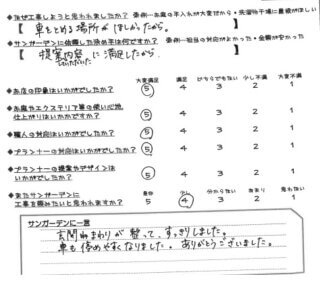 ◆なぜ工事しようと思われましたか？
【 車をとめる場所がほしかったから。 】
◆サンガーデンに依頼した決め手は何ですか？
【 提案内容に満足したから。 】
していただいた
大変満足 満足 どちらでもない 少し不満 大変不満
◆お店の印象はいかがでしたか？ 5 4 3 2 1
◆お庭やエクステリア等の使い心地、
仕上がりはいかがですか？ 5 4 3 2 1
◆職人の対応はいかがでしたか？ 5 4 3 2 1
◆プランナーの対応はいかがでしたか？ 5 4 3 2 1
◆プランナーの提案やデザインは
いかがでしたか？ 5 4 3 2 1
少し 分からない あまり 思わない
◆またサンガーデンに
工事を頼みたいと思われますか？ 5 4 3 2 1
サンガーデンに一言
玄関まわりが整って、すっきりしました。
車も停めやすくなりました。ありがとうございました。